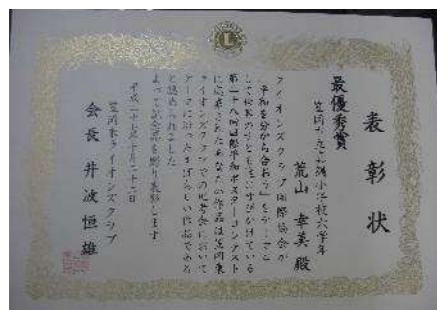 表彰状
最優秀賞
笠岡市立 小学校六学年
荒山 幸美 殿
ライオンズクラブ国際協会が
「平和を分かち合おう」をテーマと
して世界の子どもたちに呼びかけている
第二十八回国際平和ポスターコンテスト
に応募されたあなたの作品は笠岡東
ライオンズクラブでの選考会において
テーマに沿ったすばらしい作品である
と認められました
よって記念品を贈り表彰します
平成二十七年十月二十二日
笠岡東ライオンズクラブ
会長 井波恒雄